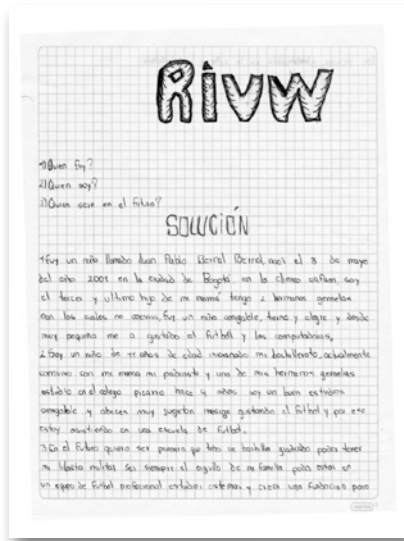 RIVW
1) Quien fuy?
2) Quien soy?
3) Quien sere en el futuro?
SOLUCIÓN
1 Fuy un niño llamado Juan Pablo Bernal Bernal, naci el 3 de mayo
del año 2001 en la ciudad de Bogotá en la clinica, soy
el tercer y ultimo hijo de mi mama tengo 2 hermanos gemelos
con los cuales no convivi, fuy un niño amigable, tierno y alegre y desde
muy pequeño me a gustado el futbol y las computadoras.
2 Soy un niño de 11 años de edad mi bachillerato, actualmente
convivo con mi mama mi padrastro y uno de mis hermanos gemelos
estudio en el colegio pizarro hace 4 años soy un buen estudiante
amigable y aveces muy jugeton me sige gustando el futbol y por eso
estoy asistiendo en una escuela de futbol.
3 En el futuro quiero ser primero que todo un bachiller graduado poder tener
mi libreta militar ser siempre el orgullo de mi familia poder entrar en
un equipo de futbol profesional estudiar sistemas y crear una fundacion para